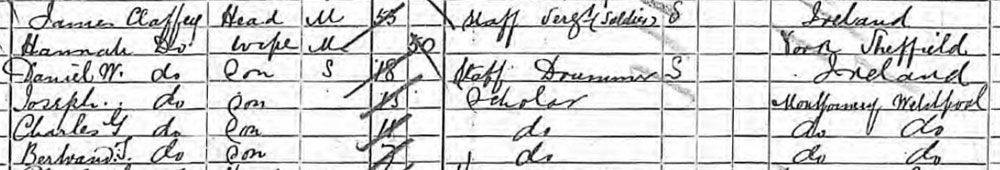 James Claffey Head M 45 Staff Sergt (Soldier) S Ireland
Hannah Do Wife M 50 York Sheffield
Daniel W. do Son S 18 Staff Drummer S Ireland
Joseph. do Son 13 Scholar Montgomery Welshpool
Charles G do Son 11 do do do
Bertrand J. do Son 7 do do do